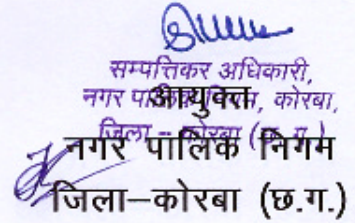 सम्पत्तिकर अधिकारी,
नगर पालिक निगम, कोरबा,
आयुक्त
जिला – कोरबा (छ. ग.)
नगर पालिक निगम
जिला–कोरबा (छ.ग.)